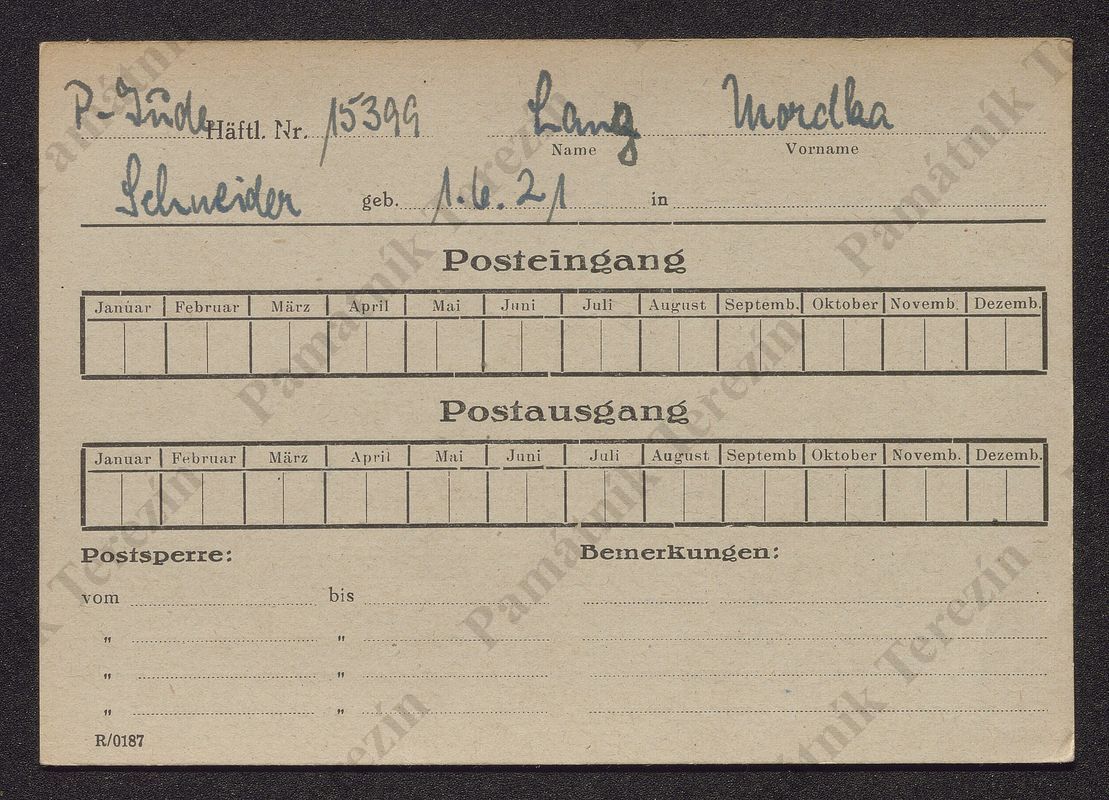 P-Jude Häftl. Nr. 15399 Lang Mordka
Name Vorname
Schneider geb. 1.6.21 in
Posteingang
Januar Februar März April Mai Juni Juli August Septemb. Oktober Novemb. Dezemb.
Postausgang
Januar Februar März April Mai Juni Juli August Septemb Oktober Novemb. Dezemb.
Postsperre: Bemerkungen:
vom bis
" "
" "
" "
R/0187
Památník Terezín